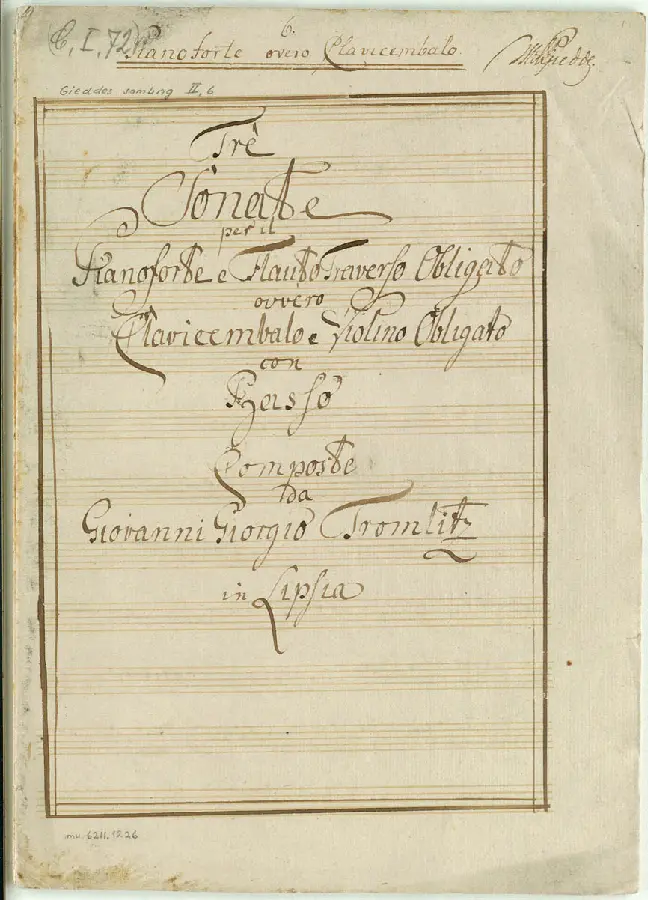 6.
(C, I, 72) Pianoforte overo Clavicembalo.
Gieddes samling IV, 6
Trè
Sonate
per il
Pianoforte e Flauto Traverso Obligato
ovvero
Clavicembalo e Violino Obligato
con
Basso
Composte
da
Giovanni Giorgio Tromlitz
in Lipsia
mu. 6211.1226